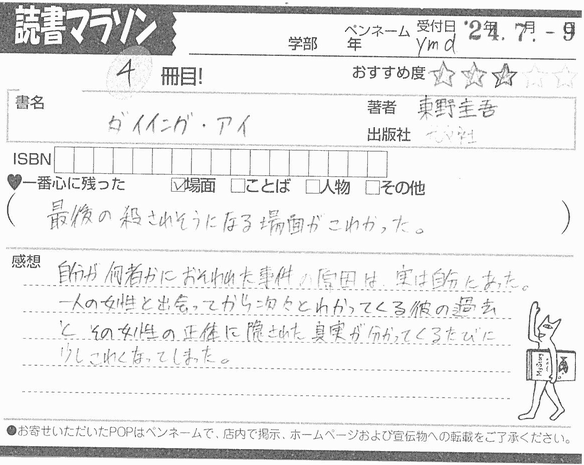 読書マラソン
学部 年 ペンネーム ymd 受付日 '24.7.-9
4 冊目! おすすめ度 ☆☆☆☆☆
書名 ダイイング・アイ
著者 東野圭吾
出版社
ISBN
♥一番心に残った ☑場面 □ことば □人物 □その他
(最後の殺されそうになる場面がこわかった。)
感想
自分が何者かにおそわれた事件の原因は、実は自分にあった。
一人の女性と出会ってから次々とわかってくる彼の過去
と、その女性の正体に隠された真実が分かってくるたびに
少しこわくなってしまった。
●お寄せいただいたPOPはペンネームで、店内で掲示、ホームページおよび宣伝物への転載をご了承ください。